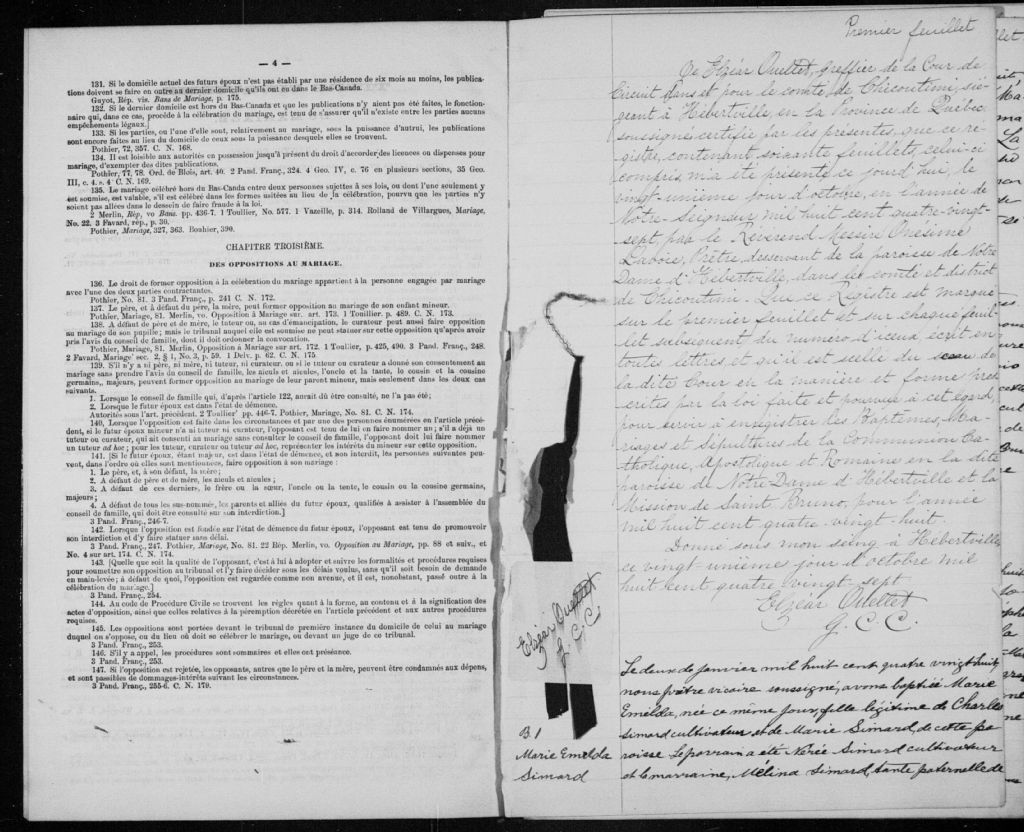 — 4 —
131. Si le domicile actuel des futurs époux n'est pas établi par une résidence de six mois au moins, les publica-
tions doivent se faire en outre au dernier domicile qu'ils ont eu dans le Bas-Canada.
Guyot, Rép. vis. Bans de Mariage, p. 175.
132. Si le dernier domicile est hors du Bas-Canada et que les publications n'y aient pas été faites, le fonction-
naire qui, dans ce cas, procède à la célébration du mariage, est tenu de s'assurer qu'il n'existe entre les parties aucuns
empêchements légaux.
133. Si les parties, ou l'une d'elles sont, relativement au mariage, sous la puissance d'autrui, les publications
sont encore faites au lieu du domicile de ceux sous la puissance desquels elles se trouvent.
Pothier, 72, 357. C. N. 168.
134. Il est loisible aux autorités en possession jusqu'à présent du droit d'accorder des licences ou dispenses pour
mariage, d'exempter des dites publications.
Pothier, 77, 78. Ord. de Blois, art. 40. 2 Pand. Franç., 324. 4 Geo. IV, c. 76 en plusieurs sections, 35 Geo.
III, c. 4. s. 4 C. N. 169.
135. Le mariage célébré hors du Bas-Canda entre deux personnes sujettes à ses lois, ou dont l'une seulement y
est soumise, est valable, s'il est célébré dans les formes usitées au lieu de la célébration, pourvu que les parties n'y
soient pas allées dans le dessein de faire fraude à la loi.
2 Merlin, Rép, vo Bans. pp. 436-7. 1 Toullier, No. 577. 1 Vazeille, p. 314. Rolland de Villargues, Mariage,
No. 22. 3 Favard, rép., p. 30.
Pothier, Mariage, 327, 363. Bouhier, 390.
CHAPITRE TROISIÈME.
DES OPPOSITIONS AU MARIAGE.
136. Le droit de former opposition à la célébration du mariage appartient à la personne engagée par mariage
avec l'une des deux parties contractantes.
Pothier, No. 81. 3 Pand. Franç., p. 241 C. N. 172.
137. Le père, et à défaut du père, la mère, peut former opposition au mariage de son enfant mineur.
Pothier, Mariage, 81. Merlin, vo. Opposition à Mariage sur. art. 173. 1 Toullier. p. 489. C. N. 173.
138. A défaut de père et de mère, le tuteur ou, au cas d'émancipation, le curateur peut aussi faire opposition
au mariage du son pupille; mais le tribunal auquel elle est soumise ne peut statuer sur cette opposition qu'après avoir
pris l'avis du conseil de famille, dont il doit ordonner la convocation.
Pothier, Mariage, 81. Merlin, Opposition à Mariage sur art. 172. 1 Toullier, p. 425, 490. 3 Pand. Franç., 248.
2 Favard, Mariage' sec. 2, § 1, No. 3, p. 59. 1 Delv. p. 62. C. N. 175
139. S'il n'y a ni père, ni mère, ni tuteur, ni curateur, ou si le tuteur ou curateur a donné son consentement au
mariage sans prendre l'avis du conseil de famille, les aïeuls et aïeules, l'oncle et la tante, le cousin et la cousine
germains, majeurs, peuvent former opposition au mariage de leur parent mineur, mais seulement dans les deux cas
suivants.
1. Lorsque le conseil de famille qui, d'après l'article 122, aurait dû être consulté, ne l'a pas été;
2. Lorsque le futur époux est dans l'état de démence.
Autorités sous l'art. précédent. 2 Toullier' pp. 446-7. Pothier, Mariage, No. 81. C. N. 174.
140. Lorsque l'opposition est faite dans les circonstances et par une des personnes énumérées en l'article précé-
dent, si le futur époux mineur n'a ni tuteur ni curateur, l'opposant est tenu de lui en faire nommer un; s'il a déjà un
tuteur ou curateur, qui ait consenti au mariage sans consulter le conseil de famille, l'opposant doit lui faire nommer
un tuteur ad hoc; pour les tuteur, curateur ou tuteur ad hoc, représenter les intérêts du mineur sur cette opposition.
141. [Si le futur époux, étant majeur, est dans l'état de démence, et non interdit, les personnes suivantes peu-
vent, dans l'ordre où elles sont mentionnées, faire opposition à son mariage :
1. Le père, et, à son défaut, la mère;
2. A défaut de père et de mère, les aïeuls et aïeules;
3. A défaut de ces derniers, le frère ou la sœur, l'oncle ou la tante, le cousin ou la cousine germains,
majeurs;
4. A défaut de tous les sus-nommés, les parents et alliés du futur époux, qualifiés à assister à l'assemblée du
conseil de famille, qui doit être consulté sur son interdiction.]
3 Pand. Franç., 246-7.
142. Lorsque l'opposition est fondée sur l'état de démence du futur époux, l'opposant est tenu de promouvoir
son interdiction et d'y faire statuer sans délai.
3 Pand. Franç., 247. Pothier, Mariage, No. 81. 22 Rép. Merlin, vo. Opposition au Mariage, pp. 88 et suiv., et
No. 4 sur art. 174. C. N. 174.
143. [Quelle que soit la qualité de l'opposant, c'est à lui à adopter et suivre les formalités et procédures requises
pour soumettre son opposition au tribunal et l'y faire décider sous les délais voulus, sans qu'il soit besoin de demande
en main-levée; à défaut de quoi, l'opposition est regardée comme non avenue, et il est, nonobstant, passé outre à la
célébration du mariage.]
3 Pand. Franç., 254.
144. Au code de Procédure Civile se trouvent les règles quant à la forme, au contenu et à la signification des
actes d'opposition, ainsi que celles relatives à la péremption décrétée en l'article précédent et aux autres procédures
requises.
145. Les oppositions sont portées devant le tribunal de première instance du domicile de celui au mariage
duquel on s'oppose, ou du lieu où doit se célébrer le mariage, ou devant un juge de ce tribunal.
3 Pand. Franç., 253.
146. S'il y a appel, les procédures sont sommaires et elles ont préséance.
3 Pand. Franç., 253.
147. Si l'opposition est rejetée, les opposants, autres que le père et la mère, peuvent être condamnés aux dépens,
et sont passibles de dommages-intérêts suivant les circonstances.
3 Pand. Franç., 255-6. C. N. 179.
Premier feuillet
Je Elzéar Ouellet, greffier de la Cour de
Circuit dans et pour le comté de Chicoutimi, sié-
geant à Hébertville, en la Province de Québec,
soussigné certifie par les présentes, que ce re-
gistre, contenant soixante feuillets, celui-ci
compris m'a été présenté ce jourd'hui, le
vingt-unième jour d'octobre, en l'année de
Notre-Seigneur mil huit cent quatre-vingt-
sept, par le Révérend Messire Onésime
Lavoie, Prêtre, desservant de la paroisse de Notre
Dame d'Hébertville, dans le comté et district
de Chicoutimi. Que ce Registre est marqué
sur le premier feuillet et sur chaque feuil-
let subséquent du numéro d'iceux, écrit en
toutes lettres et qu'il est scellé du sceau de
la dite Cour en la manière et forme pres-
crites par la loi faite et pourvue à cet égard,
pour servir à enregistrer les Baptêmes, Ma-
riages et Sépultures de la Communion Ca-
tholique, Apostolique et Romaine en la dite
paroisse de Notre Dame d'Hébertville et la
Mission de Saint Bruno, pour l'année
mil huit cent quatre-vingt-huit.
Donné sous mon seing à Hébertville
ce vingt unième jour d'octobre mil
huit cent quatre vingt sept
Elzéar Ouellet
G. C. C.
Elzéar Ouellet
G. C. C.
B 1
Marie Emelda
Simard
Le deux de janvier mil huit cent quatre vingt huit
nous prêtre vicaire soussigné, avons baptisé Marie
Emelda, née ce même jour, fille légitime de Charles
Simard cultivateur et de Marie Simard, de cette pa
roisse. Le parrain a été Nérée Simard cultivateur
et la marraine, Mélina Simard, tante paternelle de